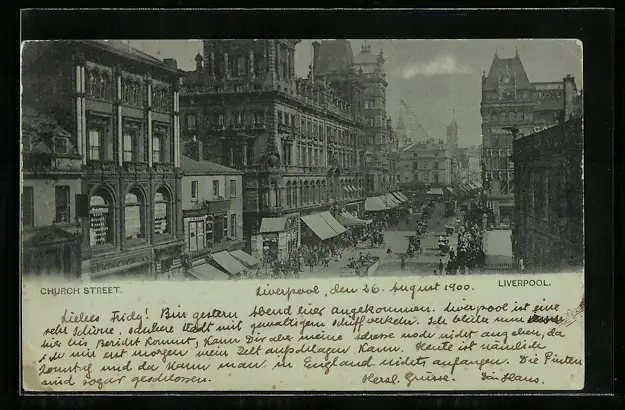 CHURCH STREET.
LIVERPOOL.
Liverpool, den 26. August 1900.
Liebes Fridy! Bin gestern Abend hier angekommen. Liverpool ist eine
sehr schöne, saubere Stadt mit gewaltigem Schiffverkehr. Ich bleibe nun
hier bis Bericht kommt, kann Dir aber meine Adresse noch nicht angeben, da
ich mir erst morgen mein Zelt aufschlagen kann. Heute ist nämlich
Sonntag und da kann man in England nichts anfangen. Die Pinten
sind sogar geschlossen. Herzl. Grüsse. Dein Hans.